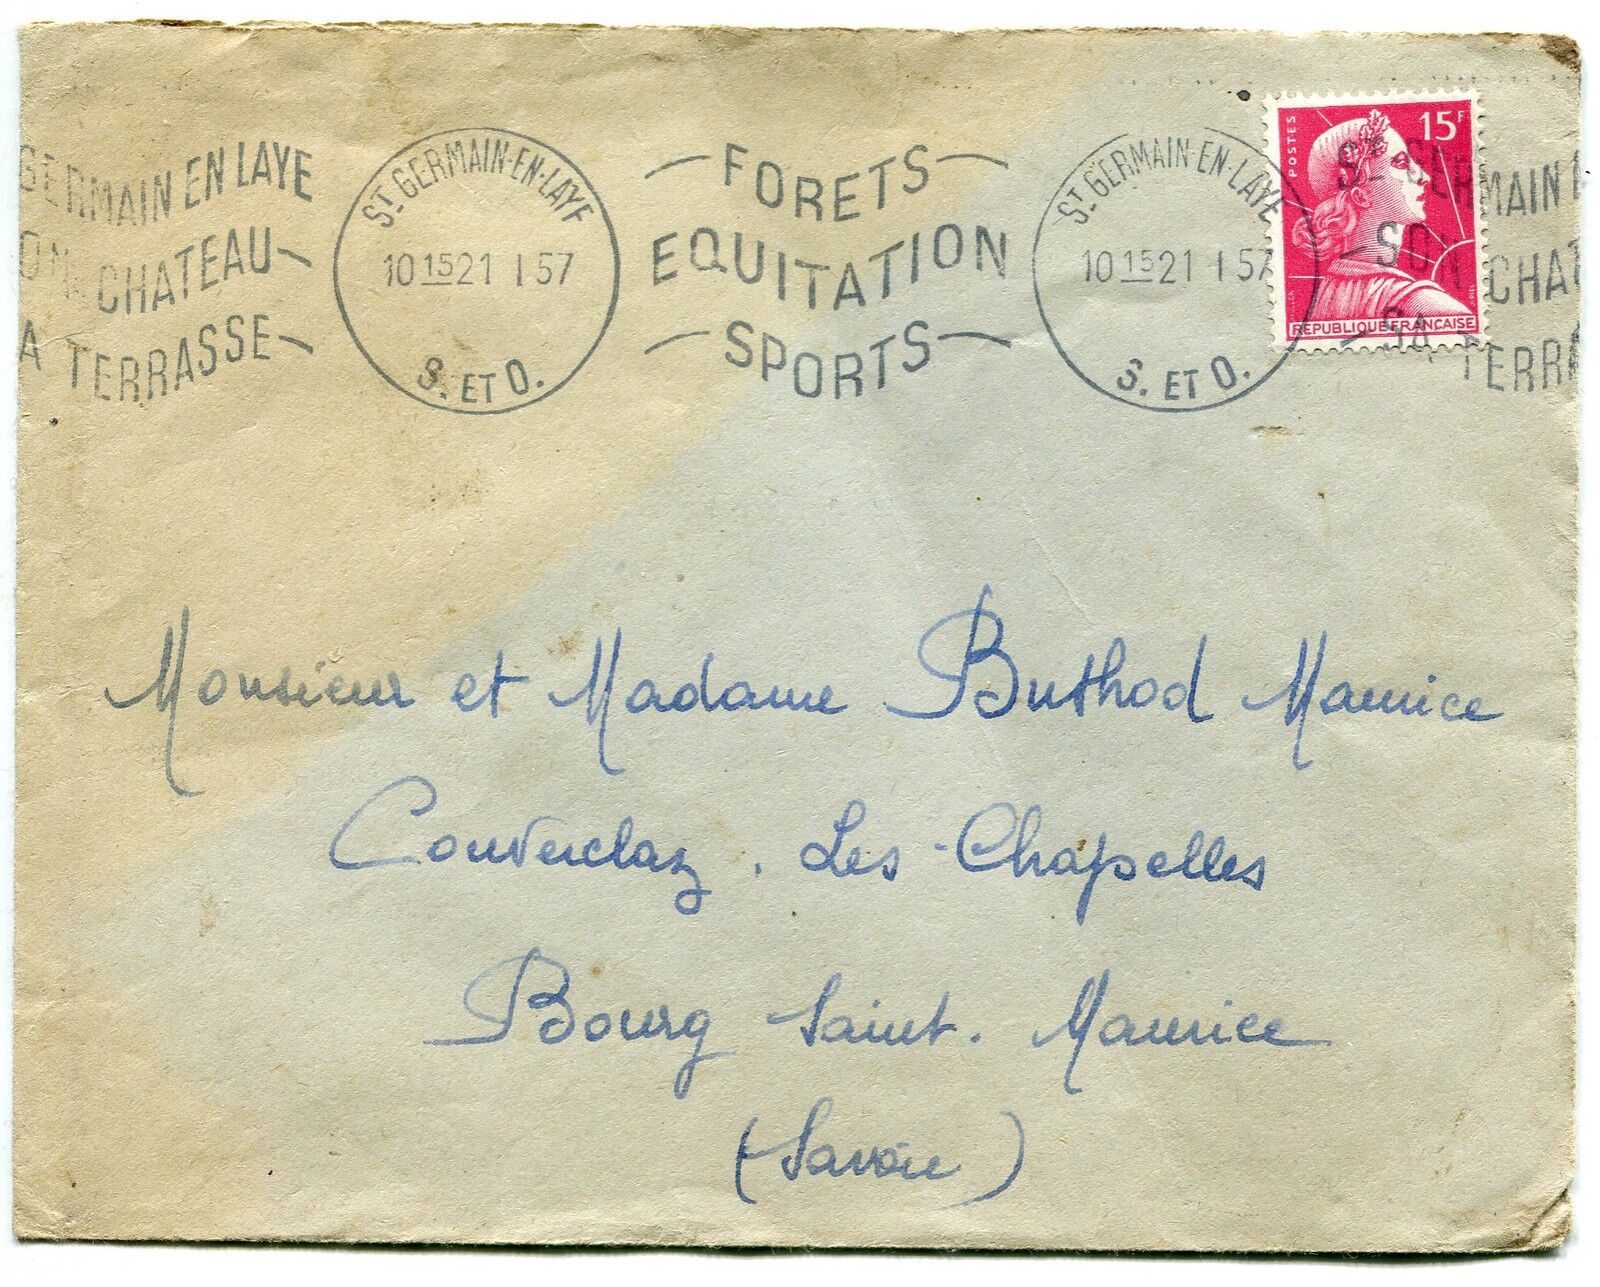 St GERMAIN EN LAYE
SON CHATEAU
SA TERRASSE
ST GERMAIN-EN-LAYE
10 15 21 1 57
S. ET O.
FORETS
EQUITATION
SPORTS
ST GERMAIN-EN-LAYE
10 15 21 1 57
S. ET O.
POSTES
15F
REPUBLIQUE FRANCAISE
St GERMAIN E
SON CHAT
SA TERRA
Monsieur et Madame Buthod Maurice
Couverclaz. Les-Chapelles
Bourg Saint. Maurice
(Savoie)